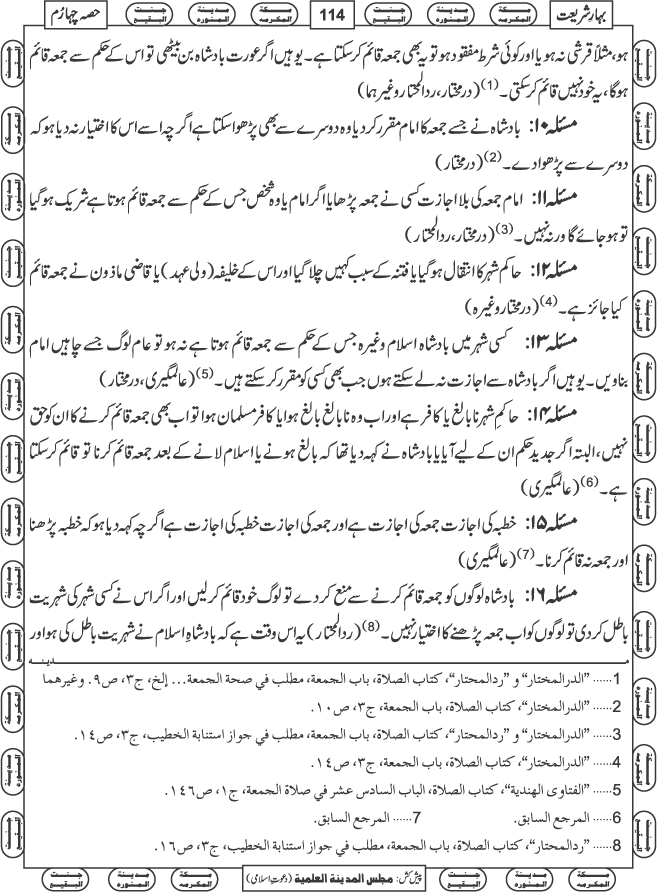 بہارِشریعت
مدینۃ المنورہ
مکۃ المکرمہ
114
جنت البقیع
مدینۃ المنورہ
مکۃ المکرمہ
حصہ چہارم
ہو، مثلاً قرشی نہ ہو یا اور کوئی شرط مفقود ہو تو یہ بھی جمعہ قائم کرسکتا ہے۔ یوہیں اگر عورت بادشاہ بن بیٹھی تو اس کے حکم سے جمعہ قائم
ہوگا، یہ خود نہیں قائم کرسکتی۔ (1) (درمختار، ردالمحتار وغیرہما)
مسئلہ ۱۰: بادشاہ نے جسے جمعہ کا امام مقرر کردیا وہ دوسرے سے بھی پڑھوا سکتا ہے اگرچہ اسے اس کا اختیار نہ دیا ہو کہ
دوسرے سے پڑھوادے۔ (2) (درمختار)
مسئلہ ۱۱: امام جمعہ کی بلا اجازت کسی نے جمعہ پڑھایا اگر امام یا وہ شخص جس کے حکم سے جمعہ قائم ہوتا ہے شریک ہوگیا
تو ہو جائے گا ورنہ نہیں۔ (3) (درمختار، ردالمحتار)
مسئلہ ۱۲: حاکم شہر کا انتقال ہوگیا یا فتنہ کے سبب کہیں چلا گیا اور اس کے خلیفہ (ولی عہد) یا قاضی ماذون نے جمعہ قائم
کیا جائز ہے۔ (4) (درمختار وغیرہ)
مسئلہ ۱۳: کسی شہر میں بادشاہ اسلام وغیرہ جس کے حکم سے جمعہ قائم ہوتا ہے نہ ہو تو عام لوگ جسے چاہیں امام
بناویں۔ یوہیں اگر بادشاہ سے اجازت نہ لے سکتے ہوں جب بھی کسی کو مقرر کرسکتے ہیں۔ (5) (عالمگیری، درمختار)
مسئلہ ۱۴: حاکم شہر نابالغ یا کافر ہے اور اب وہ نابالغ بالغ ہوا یا کافر مسلمان ہوا تو اب بھی جمعہ قائم کرنے کا ان کو حق
نہیں، البتہ اگر جدید حکم ان کے لیے آیا یا بادشاہ نے کہہ دیا تھا کہ بالغ ہونے یا اسلام لانے کے بعد جمعہ قائم کرنا تو قائم کرسکتا
ہے۔ (6) (عالمگیری)
مسئلہ ۱۵: خطبہ کی اجازت جمعہ کی اجازت ہے اور جمعہ کی اجازت خطبہ کی اجازت ہے اگرچہ کہہ دیا ہو کہ خطبہ پڑھنا
اور جمعہ نہ قائم کرنا۔ (7) (عالمگیری)
مسئلہ ۱۶: بادشاہ لوگوں کو جمعہ قائم کرنے سے منع کردے تو لوگ خود قائم کرلیں اور اگر اس نے کسی شہر کی شہریت
باطل کردی تو لوگوں کو اب جمعہ پڑھنے کا اختیار نہیں۔ (8) (ردالمحتار) یہ اس وقت ہے کہ بادشاہِ اسلام نے شہریت باطل کی ہو اور
مدینہ
1...... "الدرالمختار" و "ردالمحتار"، کتاب الصلاة، باب الجمعة، مطلب في صحة الجمعة... إلخ، ج٣، ص٩. وغيرهما
2...... "الدرالمختار"، كتاب الصلاة، باب الجمعة، ج٣، ص١٠.
3...... "الدرالمختار" و "ردالمحتار"، كتاب الصلاة، باب الجمعة، مطلب في جواز استنابة الخطيب، ج٣، ص١٤.
4...... "الدرالمختار"، كتاب الصلاة، باب الجمعة، ج٣، ص١٤.
5...... "الفتاوى الهندية"، كتاب الصلاة، الباب السادس عشر في صلاة الجمعة، ج١، ص١٤٦.
6...... المرجع السابق. 7...... المرجع السابق.
8...... "ردالمحتار"، كتاب الصلاة، باب الجمعة، مطلب في جواز استنابة الخطيب، ج٣، ص١٦.
پیش کش: مجلس المدینة العلمیة (دعوتِ اسلامی)